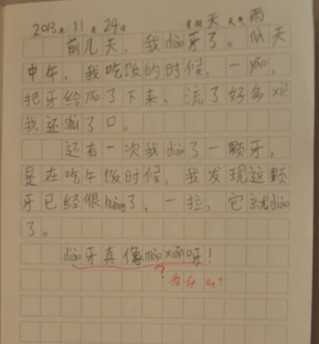 2013年11月24日 星期天 天气雨
前几天,我diào牙了。那天
中午,我吃饭的时候,一yǎo,
把牙给yǎo了下来,流了好多xiě
我还漱了口。
还有一次我diào了一颗牙,
是在吃午饭时候,我发现这颗
牙已经很huàng了,一拉,它就diào
了。
diào牙真像mào xiǎn呀!
为什么?